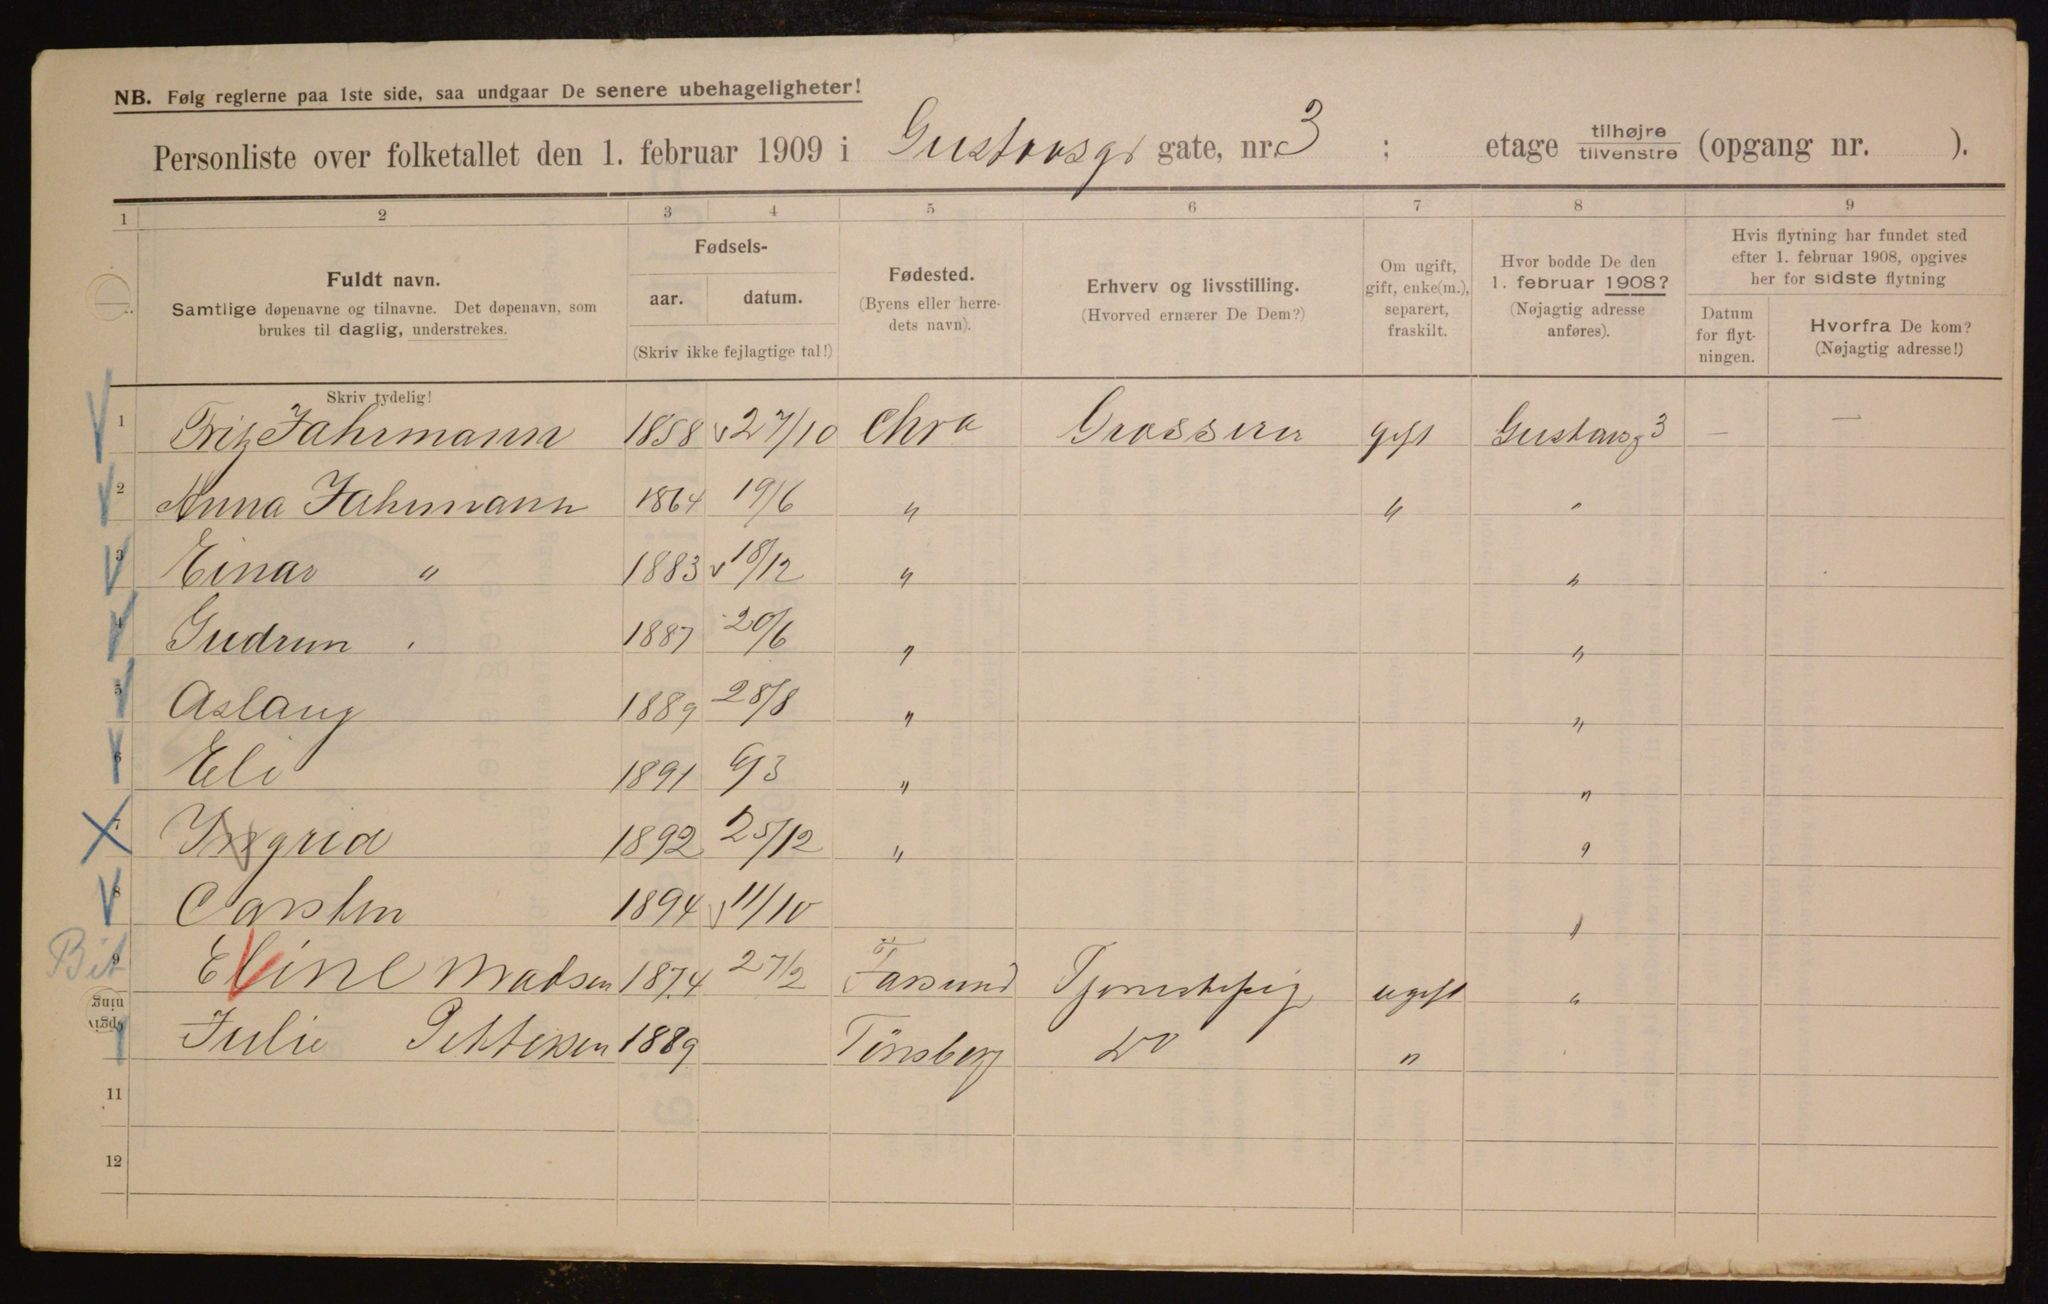 NB. Følg reglerne paa 1ste side, saa undgaar De senere ubehageligheter!
Personliste over folketallet den 1. februar 1909 i Gustavsgt gate, nr. 3 ; etage tilhøjre/tilvenstre (opgang nr. ).
1 2 3 4 5 6 7 8 9
Fuldt navn.
Samtlige døpenavne og tilnavne. Det døpenavn, som
brukes til daglig, understrekes.
Skriv tydelig!
Fødsels-
aar. datum.
(Skriv ikke fejlagtige tal!)
Fødested.
(Byens eller herre-
dets navn).
Erhverv og livsstilling.
(Hvorved ernærer De Dem?)
Om ugift,
gift, enke(m.),
separert,
fraskilt.
Hvor bodde De den
1. februar 1908?
(Nøjagtig adresse
anføres).
Hvis flytning har fundet sted
efter 1. februar 1908, opgives
her for sidste flytning
Datum
for flyt-
ningen.
Hvorfra De kom?
(Nøjagtig adresse!)
1 Fritz Fahrmann 1858 27/10 Chra Grosserer gift Gustavsg 3 — —
2 Anna Fahrmann 1864 19/6 " " "
3 Einar " 1883 18/12 " "
4 Gudrun " 1887 20/6 " "
5 Aslaug 1889 28/8 " "
6 Eli 1891 6/3 " "
7 Ingrid 1892 25/12 " "
8 Carsten 1894 11/10 "
Bet 9 Eline Madsen 1874 27/2 Farsund Tjenestepige ugift "
Julie Pettersen 1889 Tönsberg Do "
11
12